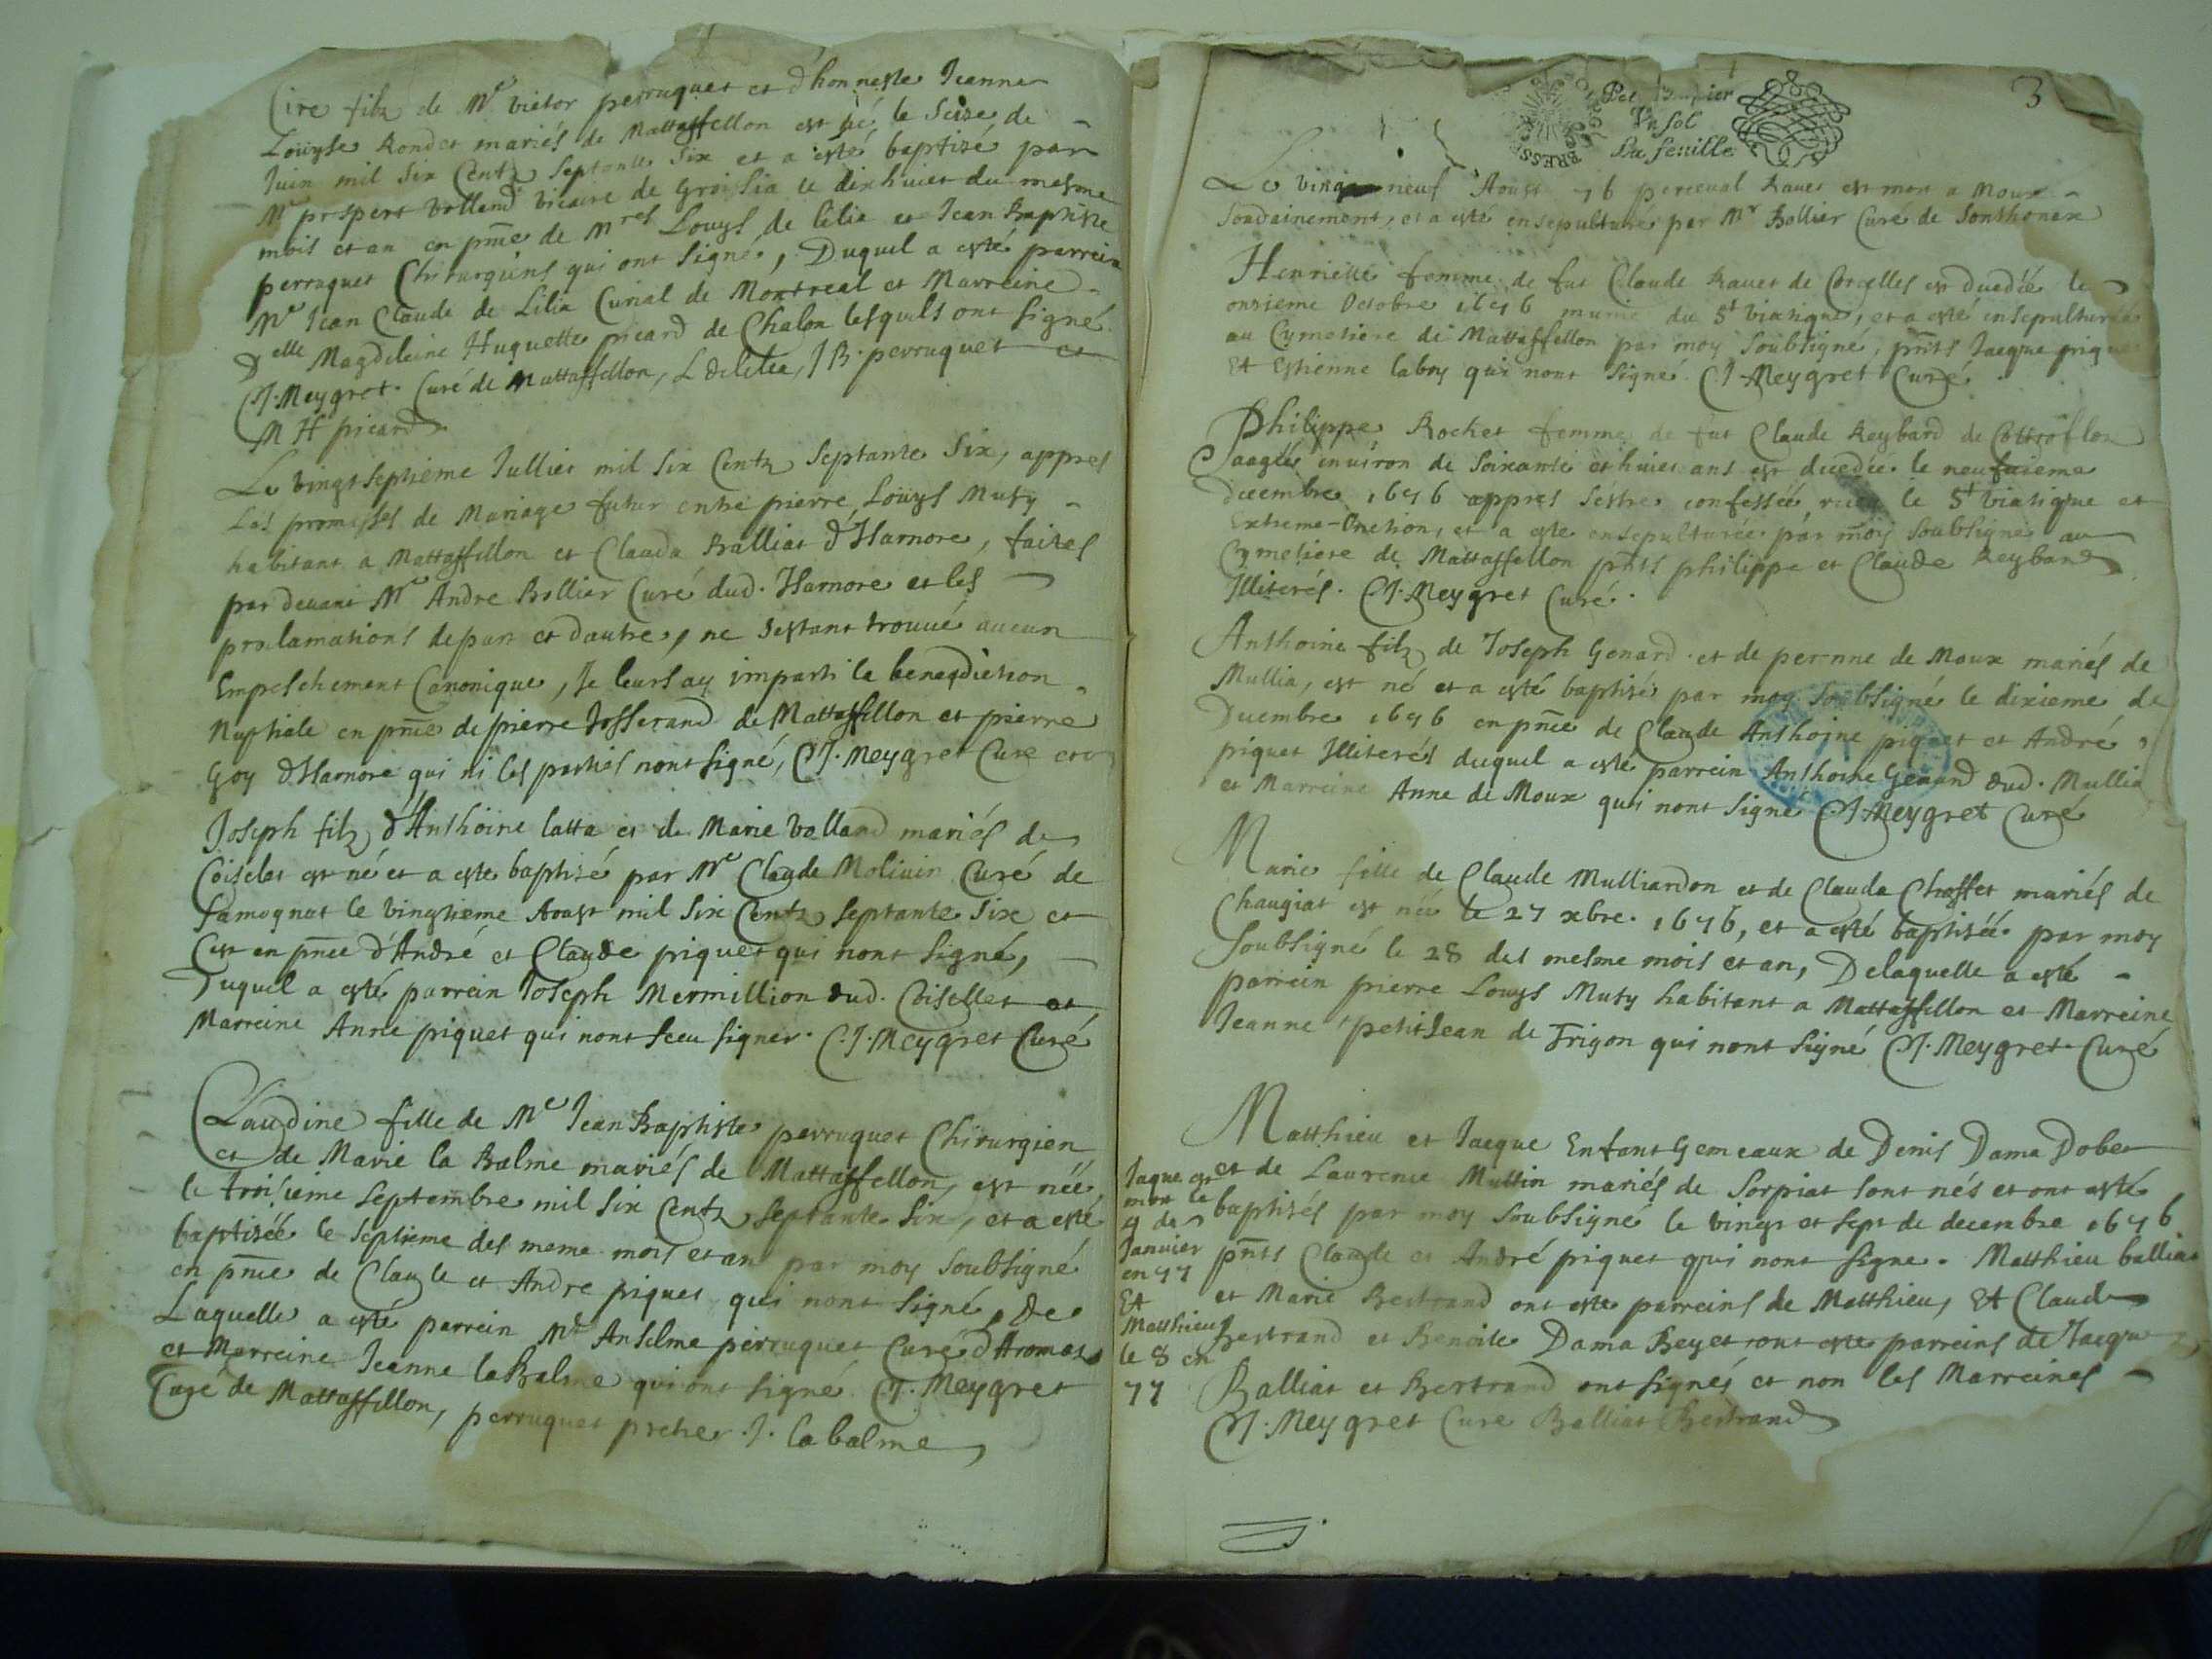 Cire filz de Me victor perruquet et d'honneste Jeanne
Louyse Rondet mariés de Mattaffellon est né le Seize de
Juin mil Six Centz Septante Six et a esté baptizé par
Me prospert volland vicaire de Groissia le dixhuict du mesme
mois et an en pnce de Mres Louys de lilia et Jean Baptiste
perruquet Chirurgiens qui ont Signé, Duquel a esté parrein
Me Jean Claude de Lilia Curial de Montreal et Marreine
Delle Magdeleine Huguette picard de Chalon lesquels ont Signé
CJ. Meygret Curé de Mattaffellon, L Delilia, JB. perruquet et
M H picard
Le vingt septieme Jullier mil six Centz Septante Six, appres
Les promesses de Mariage futur entre pierre Louys Muty
habitant a Mattaffellon et Clauda Balliat d'Hamore, faites
par devant Mr Andre Bollier Curé dud. Hamore et les
proclamations de part et dautre, ne sestant trouvé aucun
Empeschement Canonique, Je leurs ay imparti la benediction
Nuptiale en pnce de pierre Josserand de Mattaffellon et pierre
Goy d'Hamore qui ni les parties nont signé, CJ. Meygret Cure
Joseph filz d'Anthoine latta et de Marie volland mariés de
Coiselet est né et a esté baptisé par Mre Claude Molivin Curé de
Samognat le vingtieme Aoust mil Six Centz Septante Six et
Cest en pnce d'André et Claude piquet qui nont signé,
Duquel a esté parrein Joseph Mermillion dud. Coisellet et
Marreine Anne piquet qui nont sceu signer. C.J. Meygret Curé
Claudine fille de Me Jean Baptiste perruquet Chirurgien
et de Marie la Balme mariés de Mattaffellon, est née
le troisieme Septembre mil six Centz septante six, et a esté
baptisée le septieme des meme mois et an par moy soubsigné
en pnce de Claude et Andre piquet qui nont signé, de
Laquelle a esté parrein Me Anselme perruquet Curé d'Aromas
et Marreine Jeanne la Balme qui ont signé CJ. Meygret
Curé de Mattaffellon, perruquet pretre J. labalme
3
Un sol
La feuille
BRESSE
Le vingt neuf Aoust 76 perceval Ravet est mort a Moux
Soudainement, et a esté ensepulturé par Mr Bollier Curé de Sonthonax
Henriette femme de fut Claude Ravet de Corcelles est decedée le
onzieme Octobre 1676 munie du St viatique, et a esté ensepulturée
au Cymetiere de Mattaffellon par moy Soubsigné, pnts Jacque piquet
Et Estienne labry qui nont signé CJ. Meygret Curé
Philippe Rochet femme de fut Claude Reybard de
aagée environ de Soixante et huict ans est decedée le neufvieme
decembre 1676 appres sestre confessée, receu le St viatique et
Extreme-Onction, et a esté ensepulturée par moy soubsigné au
Cymetiere de Mattaffellon pnts philippe et Claude Reybard
Illiterés. CJ. Meygret Curé.
Anthoine filz de Joseph Genard et de pernne de Moux mariés de
Mullia, est né et a esté baptisé par moy Soubsigné le dixieme de
Decembre 1676 en pnce de Claude Anthoine piquet et André
piquet Illiterés duquel a esté parrein Anthoine Genard dud. Mullia
et Marreine Anne de Moux qui nont signé CJ. Meygret Curé
Marie fille de Claude Mulliardon et de Clauda Chaffet mariés de
Chaugiat est née le 27 xbre. 1676, et a esté baptisée par moy
Soubsigné le 28 des mesme mois et an, Delaquelle a esté
parrein pierre Louys Muty habitant a Mattaffellon et Marreine
Jeanne petitJean de Trigon qui nont signé CJ. Meygret Curé
Matthieu et Jacque Enfant Gemeaux de Denis Dama Dobet
et de Laurence Muttin mariés de Sorpiat sont nés et ont esté
baptisés par moy Soubsigné le vingt et sept de decembre 1676
pnts Claude et André piquet qui nont signe. Matthieu balliat
et Marie Bertrand ont esté parreins de Matthieu, Et Claude
Bertrand et Benoite Dama Beyet ont esté parreins de Jacque
Balliat et Bertrand ont signés et non les Marreines
CJ. Meygret Cure Balliat Bertrand
Jaque est
mort le
9 de
Janvier
en 77
Et
Matthieu
le 8 en
77